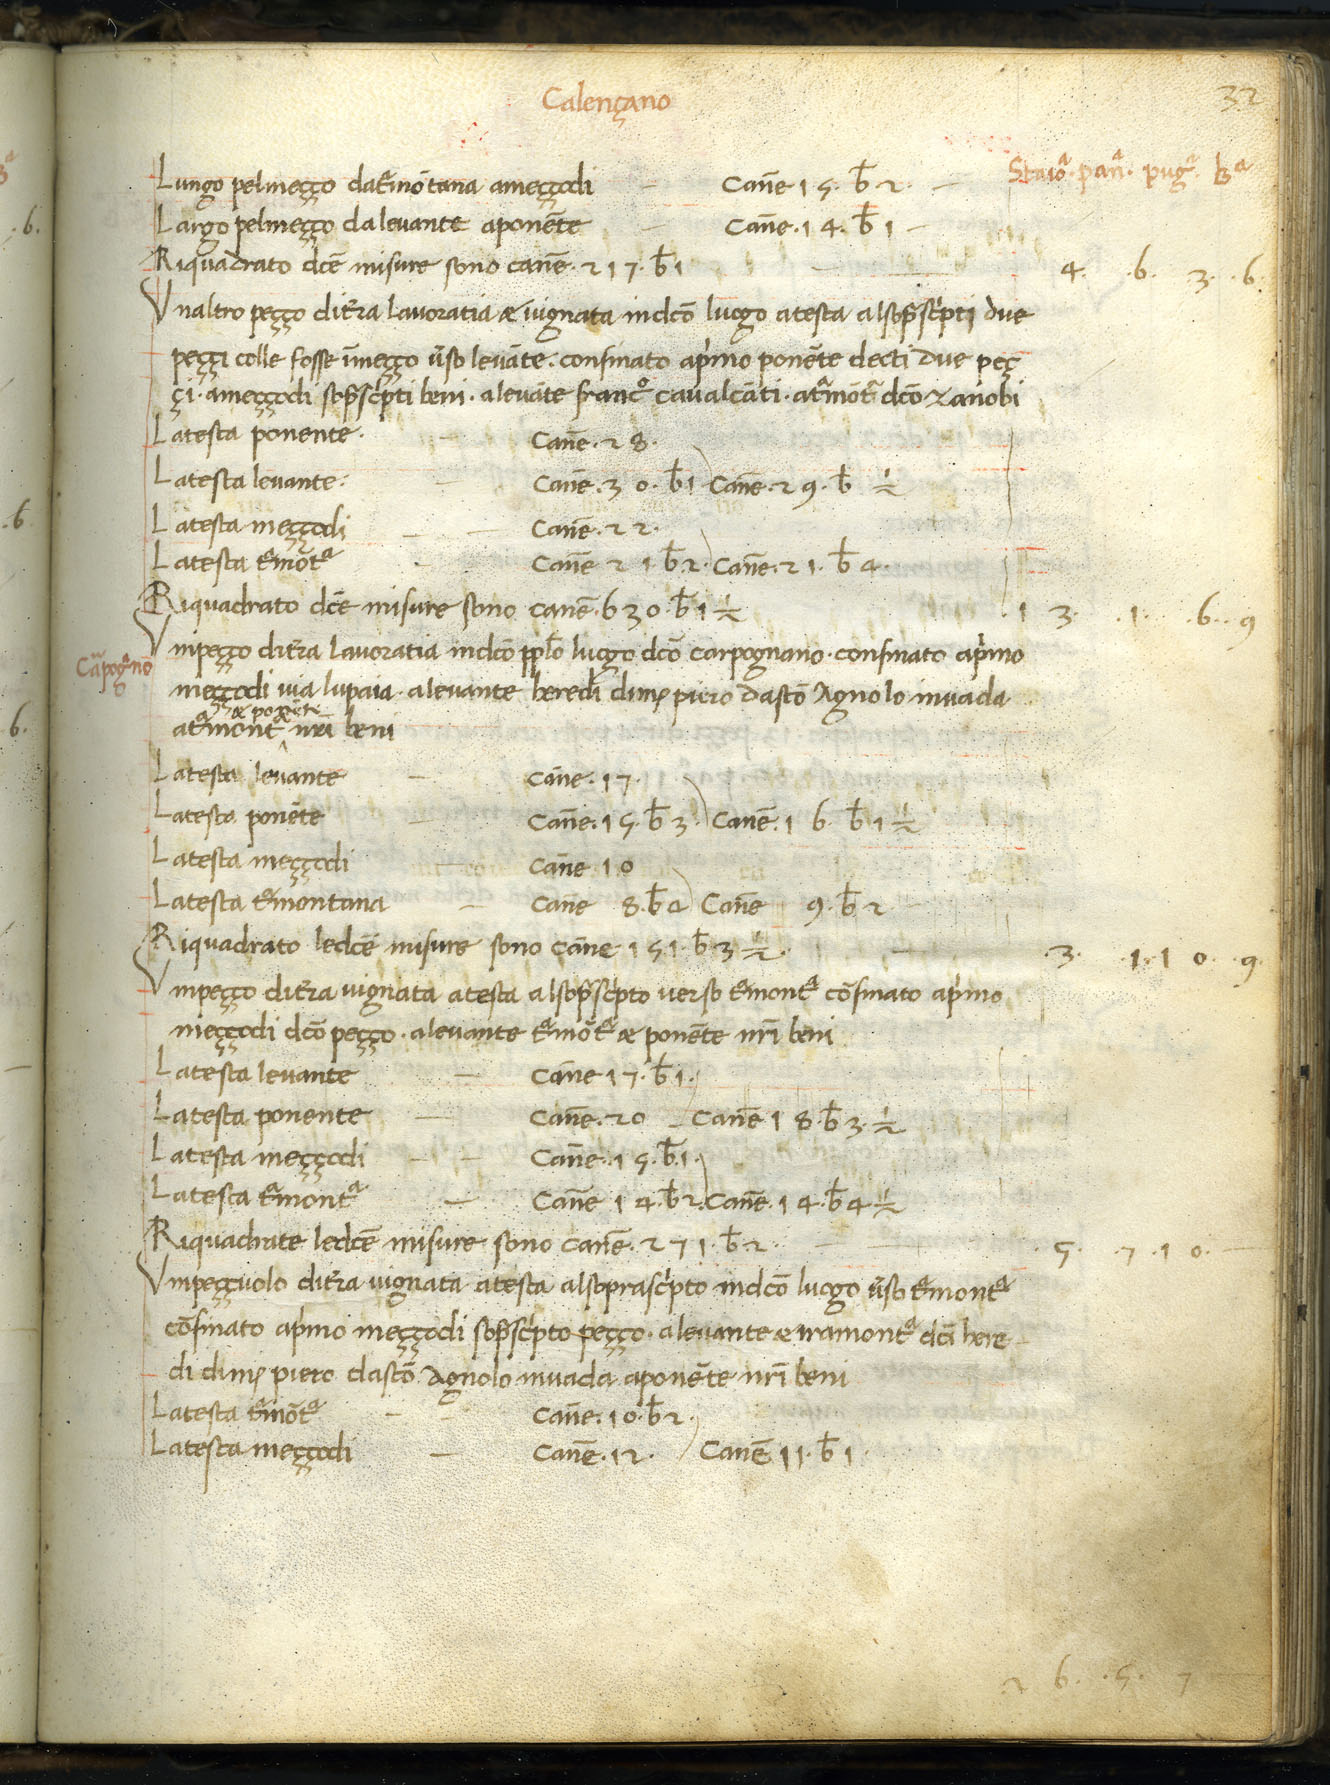 Calençano
32
Staioª · panª · pugª · bª
Lungo pelmeçço datr̃mõtana ameççodi — Cañe 15 · b̃ 2 · —
Largo pelmeçço dalevante aponẽte — Cañe · 14 · b̃ 1 —
Riquadrato dcẽ misure sono cañe · 217 · b̃ 1 — 4 · 6 · 3 · 6
Vnaltro peççо diter̃a lavoratia æ vignata indcõ luogo atesta alsop̃scpti due
peççi colle fosse ĩmeçço ṽso levãte · confinato apĩmo ponẽte decti due peç
çi · ameççodi sop̃scpti beni · alevãte francº cavalcãti · atr̃mõtª dcõ zanobi
Latesta ponente · — Cañe · 28 ·
Latesta levante · — Cañe · 30 · b̃ 1 Cañe · 29 · b̃ ½
Latesta meççodi — Cañe · 22 ·
Latesta tr̃mõtª · Cañe 21 b̃ 2 · Cañe · 21 · b̃ 4 ·
Riquadrato dcẽ misure sono cañe · 630 · b̃ 1 ½ · 13 · 1 · 6 · 9
Canpogª no
Vnpeçço diter̃a lavoratia indcõ pplõ luogo dcõ carpognano · confinato apĩmo
meççodi via lupaia · alevante heredi dimẽ piero dastõ Agnolo invada
æ ponẽte
atr̃montª nr̃i beni
Latesta levante — Cañe · 17 ·
Latesta ponẽte — Cañe · 15 · b̃ 3 · Cañe · 16 · b̃ 1 ½
Latesta meççodi — Cañe 10
Latesta tr̃montana — Cañe 8 · b̃ 4 Cañe 9 · b̃ 2
Riquadrato ledcẽ misure sono cañe 151 · b̃ 3 ½ · — 3 · 1 · 10 · 9
Vnpeçço diter̃a vignata atesta alsop̃scpto verso tr̃montª cõfinato apĩmo
meççodi dcõ peçço · alevante tr̃mõtª æ ponẽte nr̃i beni
Latesta levante — Cañe 17 · b̃ 1 ·
Latesta ponente — Cañe · 20 Cañe 18 · b̃ 3 · ½
Latesta meççodi — Cañe · 15 · b̃ 1 ·
Latesta tr̃montª — Cañe 14 · b̃ 2 · Cañe · 14 · b̃ 4 ½
Riquadrate ledcẽ misure sono cañe · 271 · b̃ 2 · — 5 · 7 · 10 · —
Vnpeççuolo diter̃a vignata atesta alsoprascpto indcõ luogo ṽso tr̃montª
cõfinato apĩmo meççodi sop̃scpto peçço · alevante æ tramontª dcã here
di dimẽ piero dastõ Agnolo invada aponẽte nr̃i beni
Latesta tr̃mõtª — Cañe · 10 · b̃ 2 ·
Latesta meççodi — Cañe · 12 · Cañe 11 · b̃ 1 ·
· 2 6 · 5 · 7